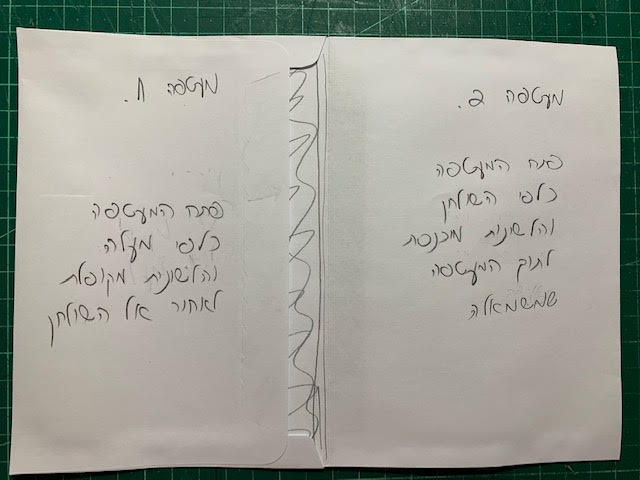 מעטפה 1.
פתח המעטפה
כלפי מעלה
והלשונית מקופלת
לאחור אל השולחן
מעטפה 2.
פתח המעטפה
כלפי השולחן
והלשונית מוכנסת
לתוך המעטפה
שמשמאלה